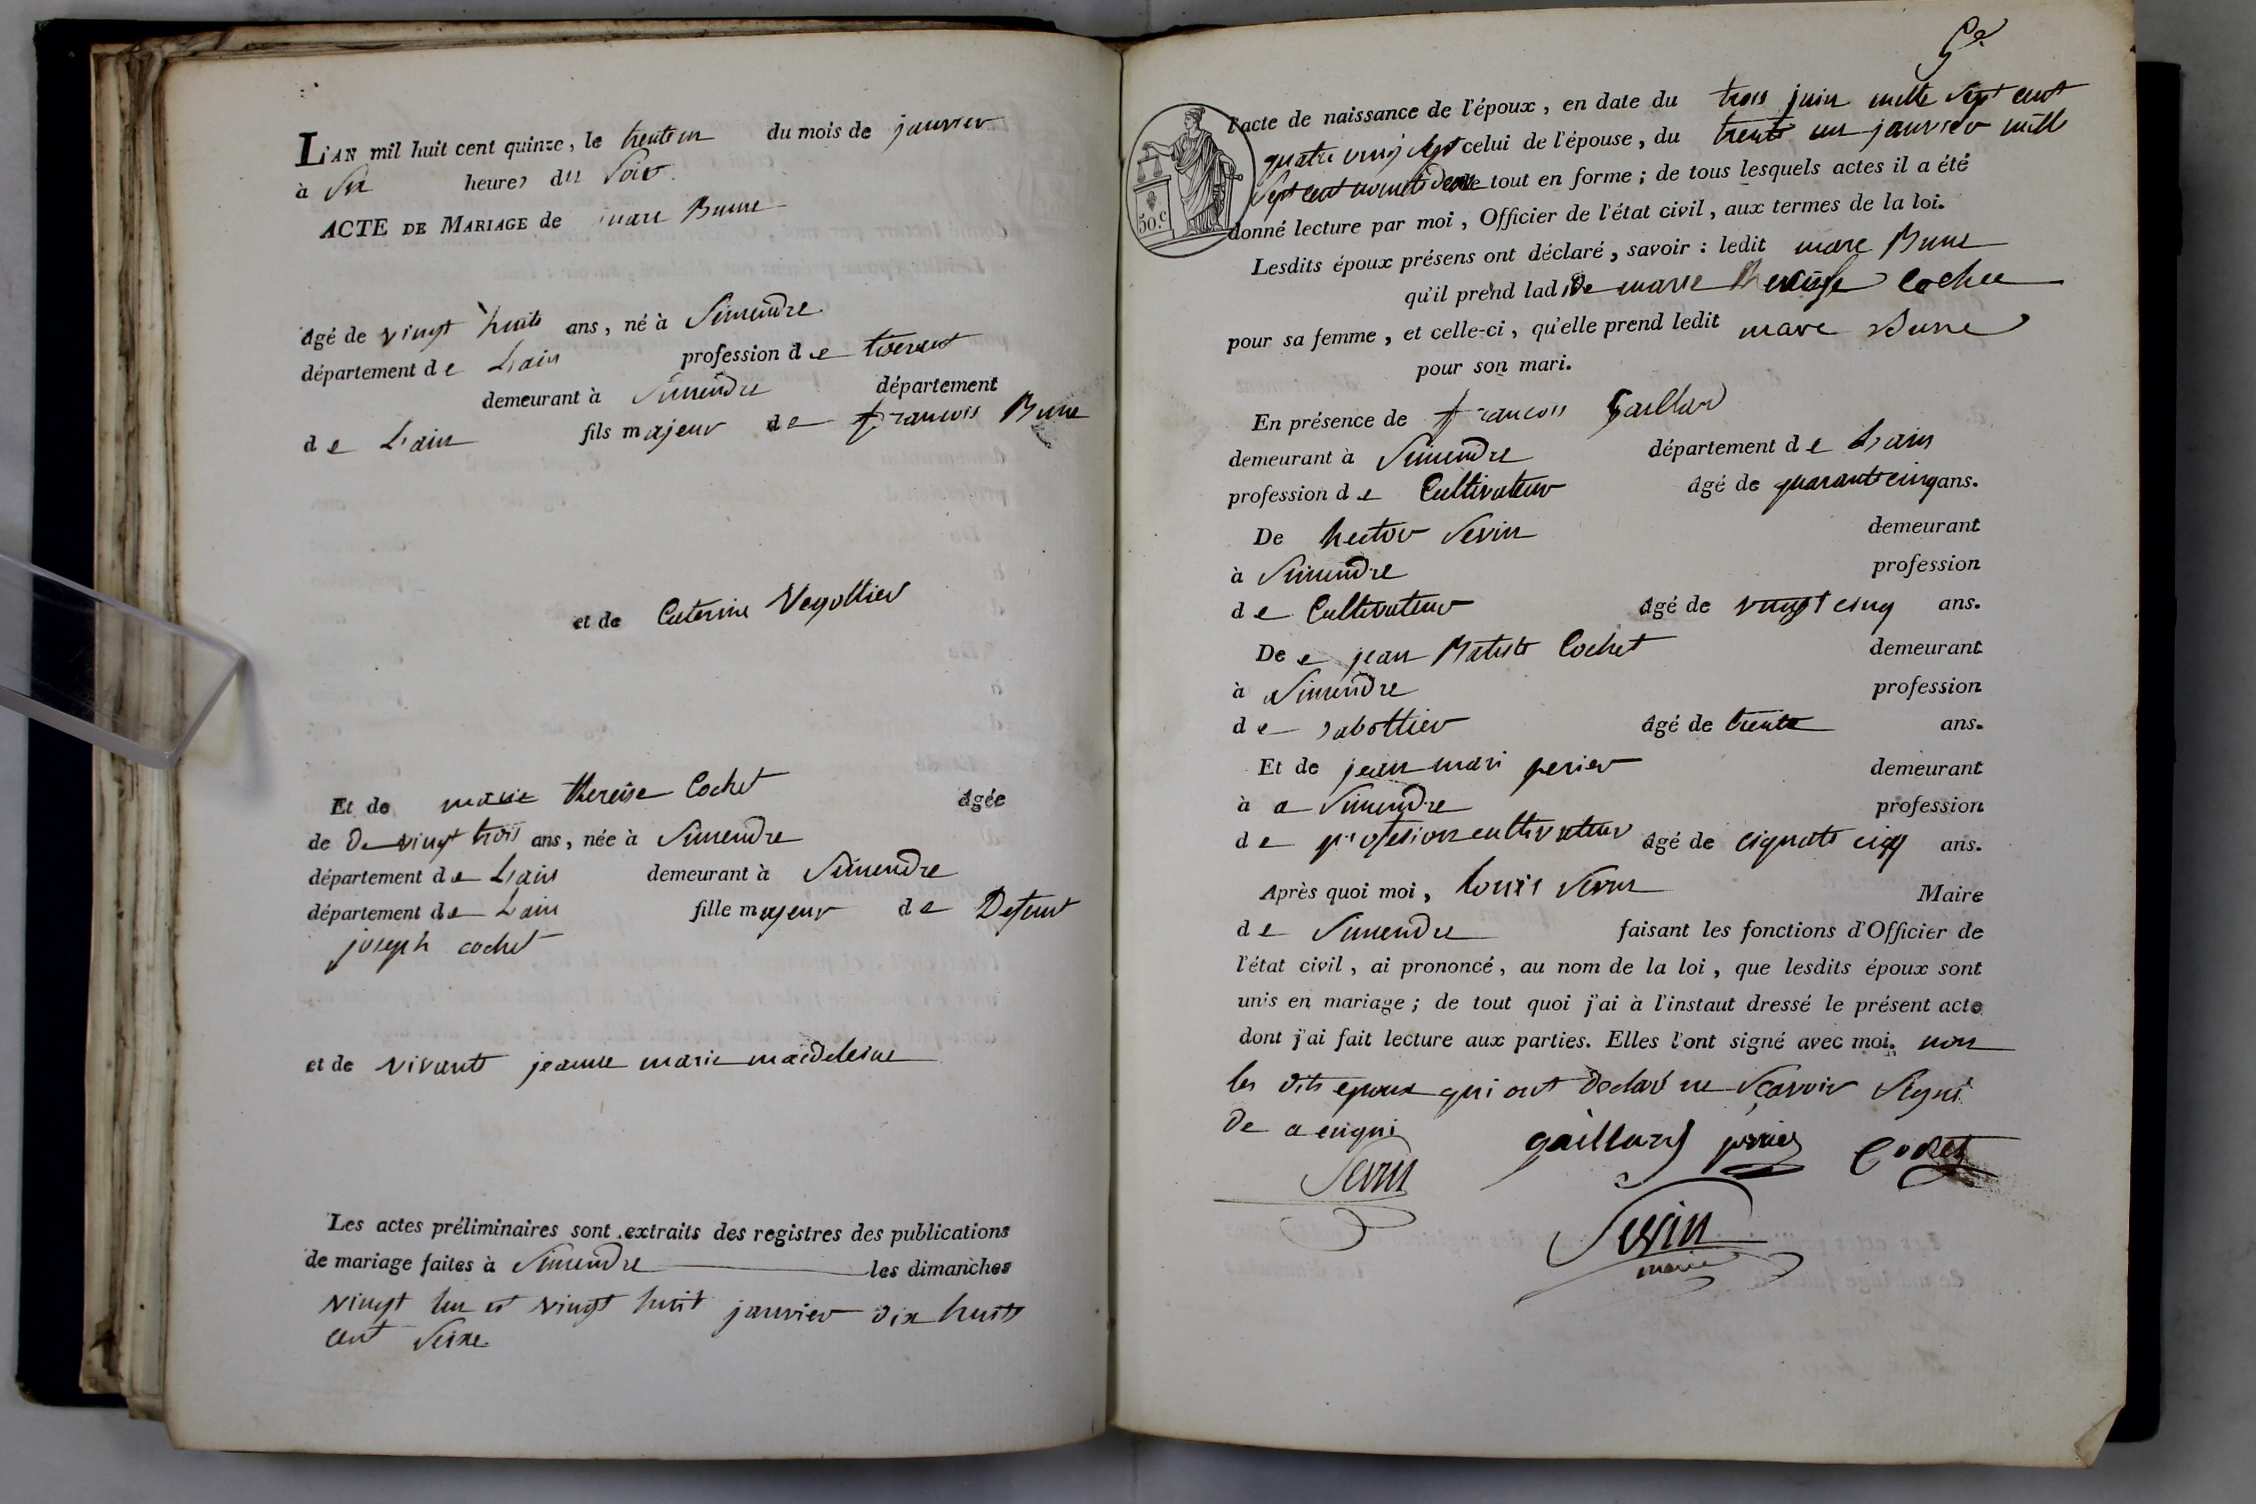 L'AN mil huit cent quinze, le trente un du mois de janvier
à Six heures du Soir
ACTE DE MARIAGE de marc Bunne
âgé de vingt huits ans, né à Simandre
département de Lain profession de
demeurant à Simandre département
de Lain fils majeur de francois Bune
et de Caterine
Et de marie thereise Cochet âgée
de De vingt trois ans, née à Simendre
département de Lain demeurant à Simendre
département de Lain fille majeur de Defunt
joseph cochet
et de vivante jeanne marie maidelaine
Les actes préliminaires sont extraits des registres des publications
de mariage faites à Simendre les dimanches
vingt hun et vingt huit janvier dix huits
cent Seixe
l'acte de naissance de l'époux, en date du trois juin mille Sept cent
quatre vingt Sept celui de l'épouse, du trente un janvier mille
Sept cent tout en forme; de tous lesquels actes il a été
50.c donné lecture par moi, Officier de l'état civil, aux termes de la loi.
Lesdits époux présens ont déclaré, savoir: ledit marc Bune
qu'il prend ladite marie Cochet
pour sa femme, et celle-ci, qu'elle prend ledit marc Bune
pour son mari.
En présence de francois Gaillard
demeurant à Simendre département de Lain
profession de Cultivateur âgé de quarante cinq ans.
De hector Sevin demeurant
à Simendre profession
de Cultivateur âgé de vingt cinq ans.
De e jean Batiste Cochet demeurant
à Simendre profession
de sabottier âgé de trente ans.
Et de jean mari perier demeurant
à a Simendre profession
de profesion cultivateur âgé de cignate ciqq ans.
Après quoi moi, louis Sevin Maire
de Simendre faisant les fonctions d'Officier de
l'état civil, ai prononcé, au nom de la loi, que lesdits époux sont
unis en mariage; de tout quoi j'ai à l'instaut dressé le présent acte
dont j'ai fait lecture aux parties. Elles l'ont signé avec moi. non
les dits epoux qui ont declaré ne Scavoir Signé
De a enqui
Sevin gaillard perier Cochet
Sevin
maire